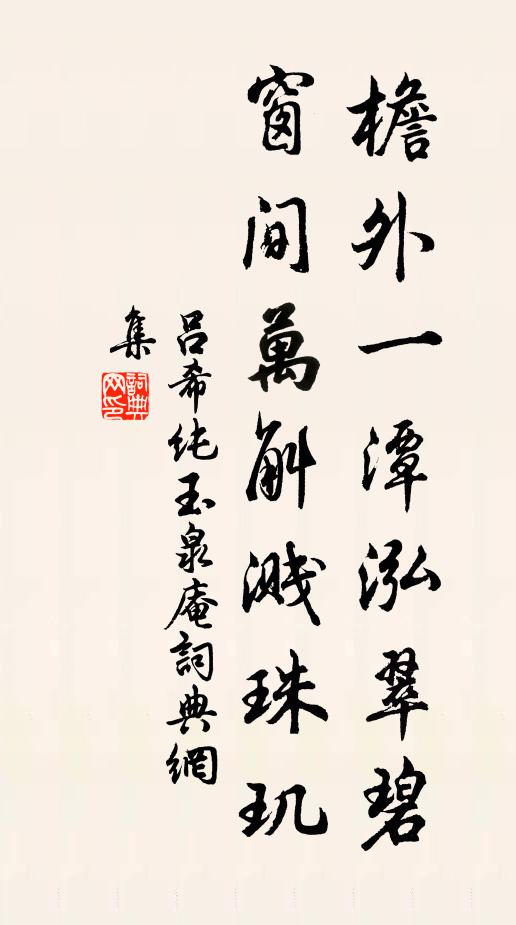 檐外一潭泓翠碧
窗间萬斛溅珠玑
吕希纯玉泉庵詞典網
集
詞典
网印